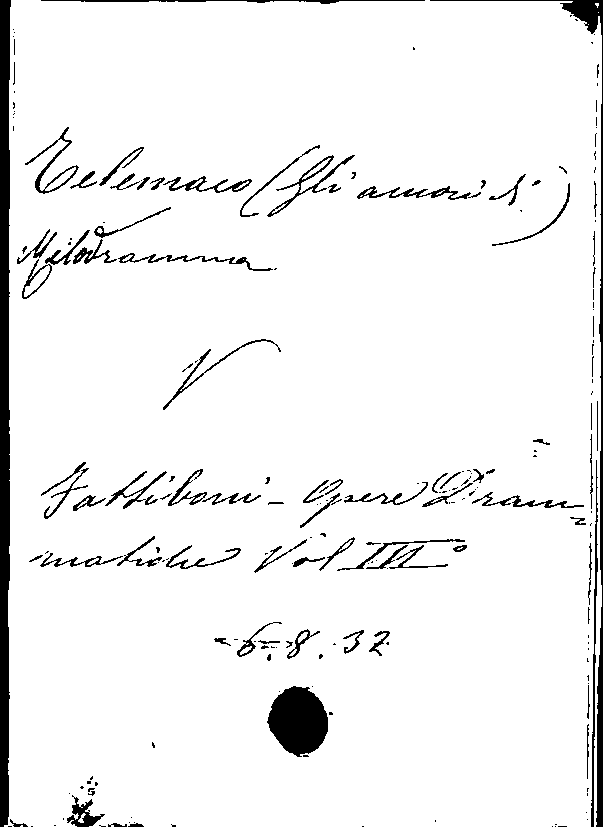 Telemaco (Gli amori di)
Melodramma
V
Fattiboni - Opere Dram=
matiche Vol III°
6.8.32